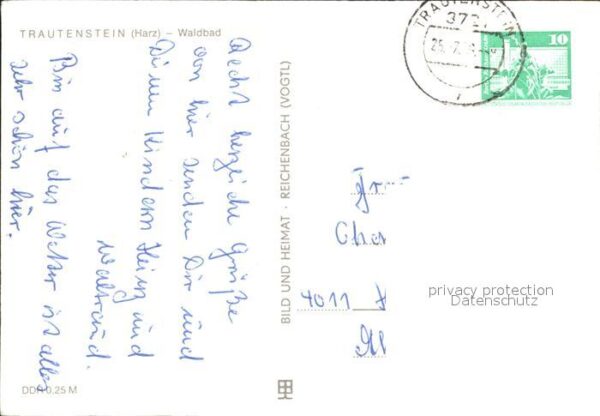 TRAUTENSTEIN (Harz) – Waldbad
Recht herzliche Grüße
von hier senden Dir und
Deinen Kindern Heinz und
Waltraud.
Bis auf das Wetter ist alles
sehr schön hier.
DDR 0,25 M
BILD UND HEIMAT · REICHENBACH (VOGTL)
TRAUTENSTEIN
10
4011
privacy protection
Datenschutz